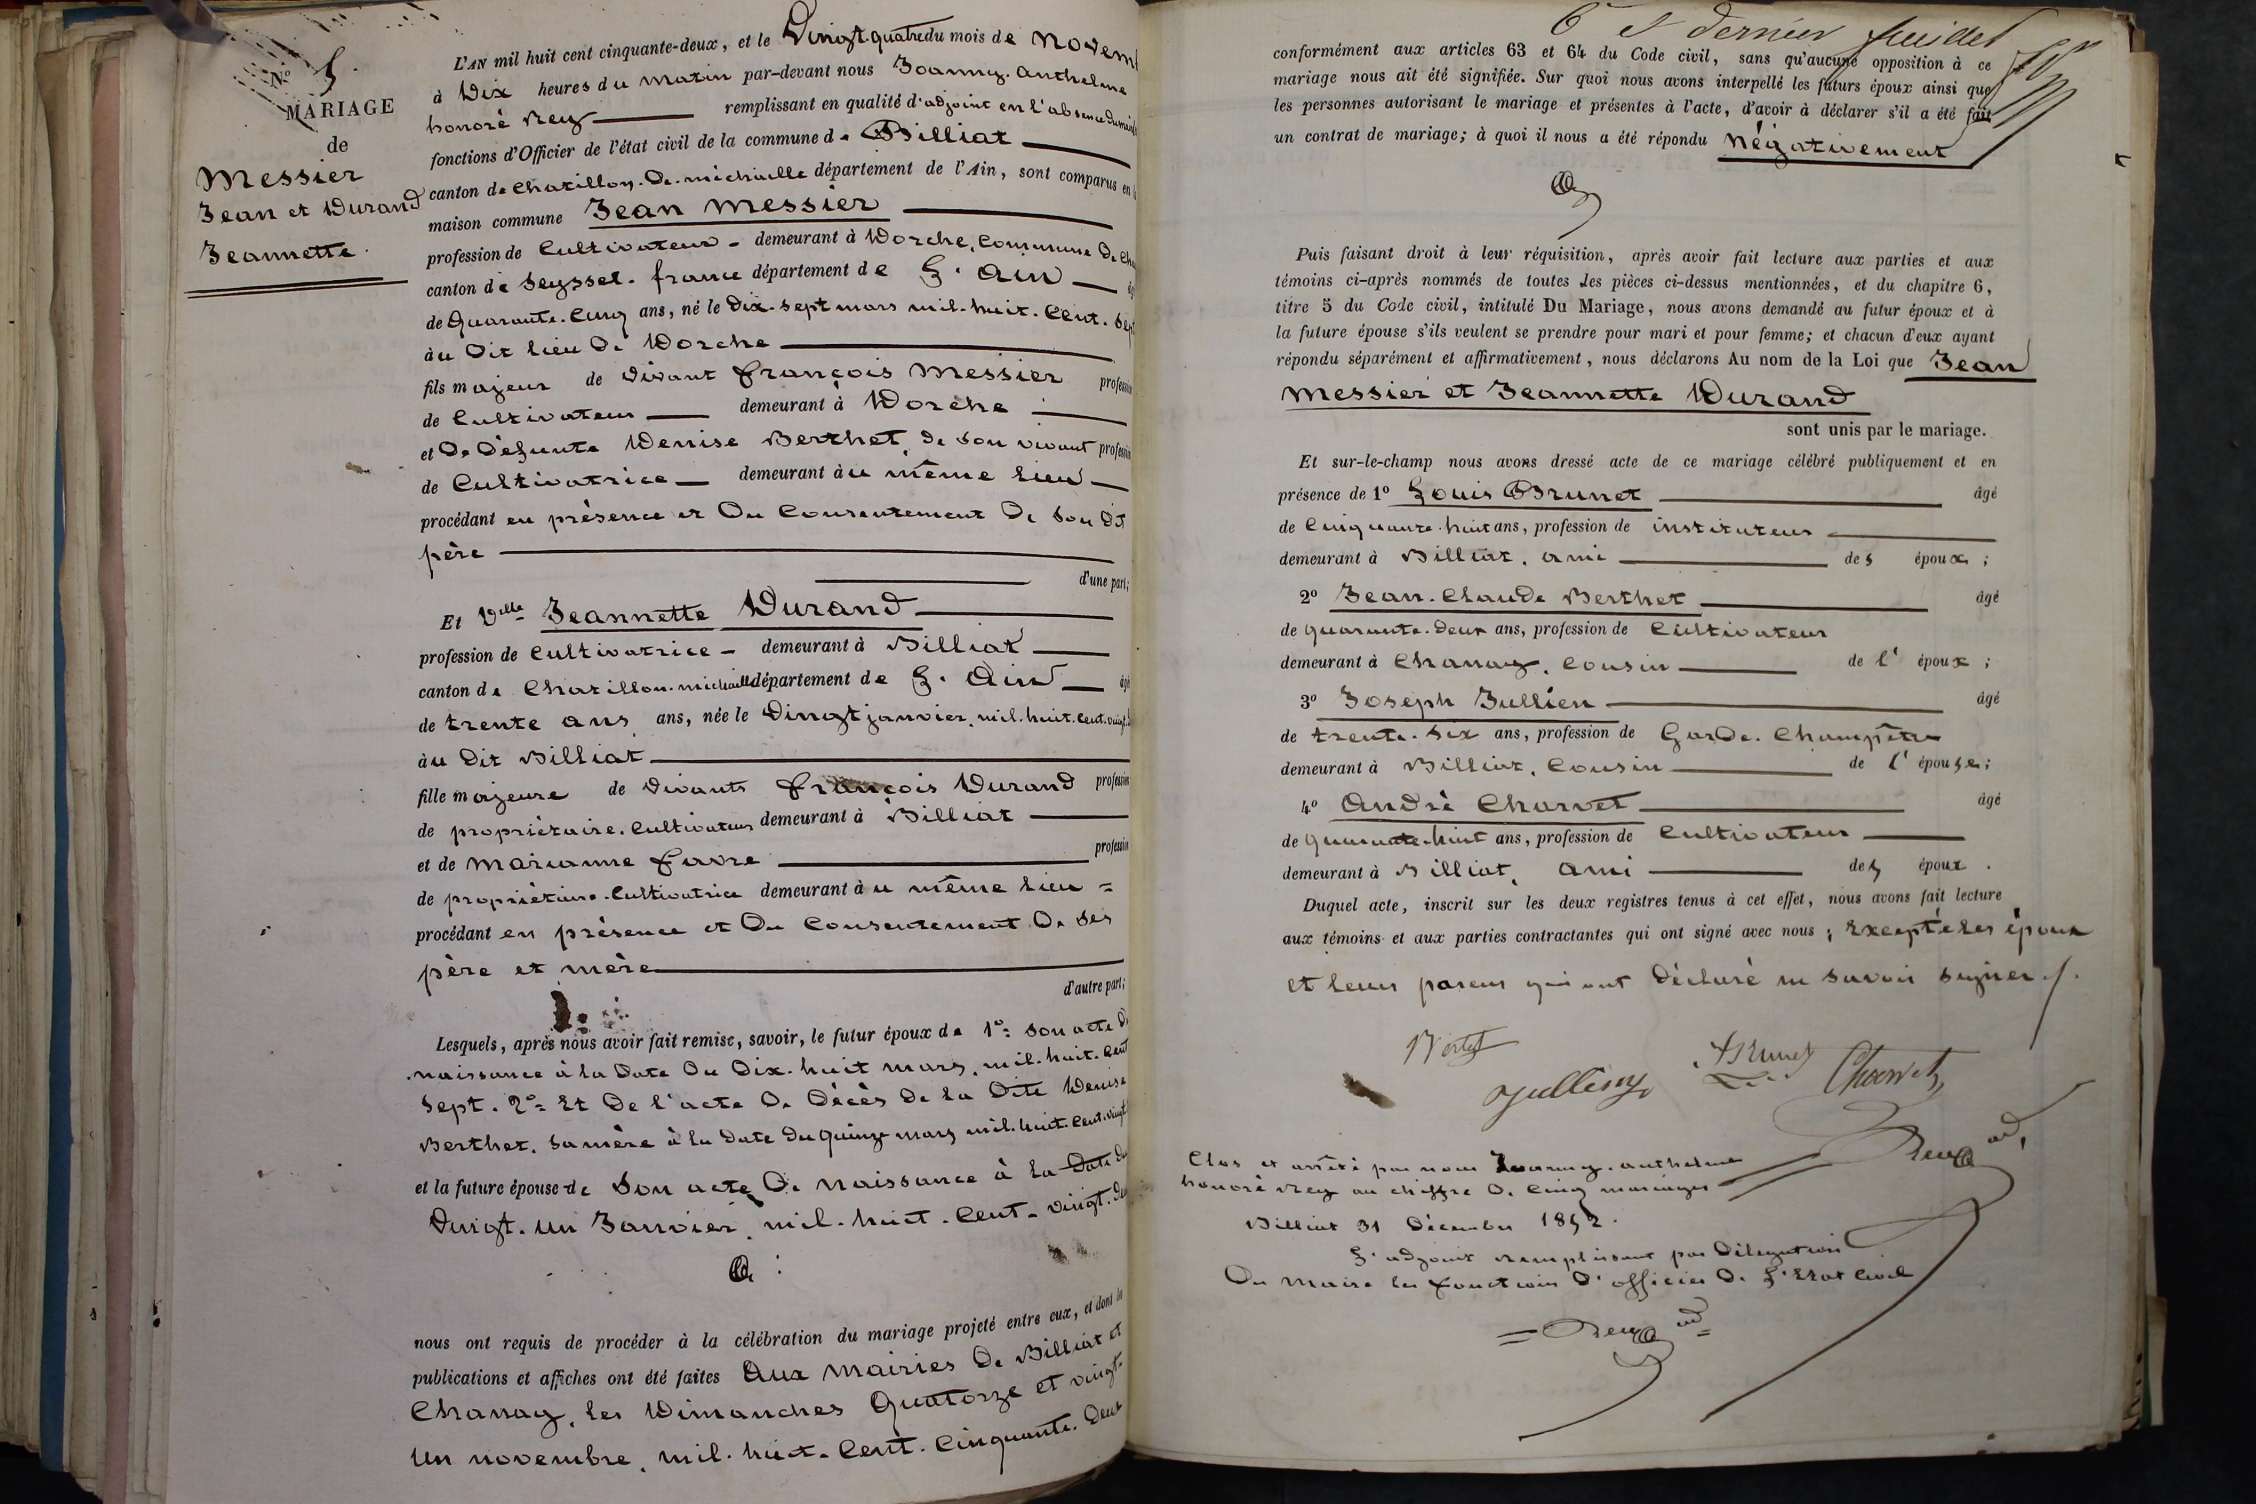 N.° 5.
MARIAGE
de
Messier
Jean et Durand
Jeannette.
L'AN mil huit cent cinquante-deux, et le Vingt quatre du mois de Novem
à Dix heures du matin par-devant nous Joanny. Anthelme
honoré Rey remplissant en qualité d'adjoint en l'absence du maire
fonctions d'Officier de l'état civil de la commune de Billiat
canton de Chatillon. De. michaille département de l'Ain, sont comparus en la
maison commune Jean Messier
profession de Cultivateur - demeurant à Dorche, Commune De Cha
canton de Seyssel. france département de L'Ain âgé
de Quarante. Cinq ans, né le Dix. Sept mars mil. huit. Cent. Sept
au Dit lieu De Dorche
fils majeur de vivant François Messier profession
de Cultivateur demeurant à Dorche
et De Défunte Denise Berthet De Son vivant profession
de Cultivatrice demeurant au même lieu
procédant en présence et Du Consentement De Son Dit
père
d'une part;
Et Dlle Jeannette Durand
profession de Cultivatrice - demeurant à Billiat
canton de Chatillon. michaille département de L'Ain âgé
de trente ans ans, née le Vingt janvier, mil. huit. Cent. vingt.
au Dit Billiat
fille majeure de Vivants François Durand profession
de propriétaire. Cultivateur demeurant à Billiat
et de Marianne Favre profession
de propriétaire. Cultivatrice demeurant au même lieu =
procédant en présence et Du Consentement De Ses
père et mère
d'autre part;
Lesquels, après nous avoir fait remise, savoir, le futur époux de 1°= Son acte De
naissance à la Date Du Dix. huit mars, mil. huit. Cent
Sept. 2°= Et De l'acte De Décès De la Dite Denise
Berthet. Sa mère à la Date Du quinze mars mil. huit. Cent. vingt
et la future épouse de Son acte De naissance à la Date Du
Vingt. un Janvier, mil. huit. Cent. vingt. Deux
nous ont requis de procéder à la célébration du mariage projeté entre eux, et dont les
publications et affiches ont été faites Aux Mairies De Billiat et
Chanay, les Dimanches Quatorze et vingt-
un novembre, mil. huit. Cent. Cinquante. Deux
6e et dernier feuillet
conformément aux articles 63 et 64 du Code civil, sans qu'aucune opposition à ce
mariage nous ait été signifiée. Sur quoi nous avons interpellé les futurs époux ainsi que
les personnes autorisant le mariage et présentes à l'acte, d'avoir à déclarer s'il a été fait
un contrat de mariage; à quoi il nous a été répondu Négativement
Puis faisant droit à leur réquisition, après avoir fait lecture aux parties et aux
témoins ci-après nommés de toutes les pièces ci-dessus mentionnées, et du chapitre 6,
titre 5 du Code civil, intitulé Du Mariage, nous avons demandé au futur époux et à
la future épouse s'ils veulent se prendre pour mari et pour femme; et chacun d'eux ayant
répondu séparément et affirmativement, nous déclarons Au nom de la Loi que Jean
Messier et Jeannette Durand
sont unis par le mariage.
Et sur-le-champ nous avons dressé acte de ce mariage célébré publiquement et en
présence de 1° Louis Brunet âgé
de Cinquante. huit ans, profession de instituteur
demeurant à Billiat. ami des époux;
2° Jean. Claude Berthet âgé
de quarante. Deux ans, profession de Cultivateur
demeurant à Chanay. Cousin de l' époux;
3° Joseph Jullien âgé
de trente. Six ans, profession de Garde. Champêtre
demeurant à Billiat. Cousin de l' épouse;
4° André Charvet âgé
de quarante-huit ans, profession de Cultivateur
demeurant à Billiat. ami des époux.
Duquel acte, inscrit sur les deux registres tenus à cet effet, nous avons fait lecture
aux témoins et aux parties contractantes qui ont signé avec nous; Excepté les époux
et leurs parens qui ont Déclaré ne Savoir Signer./.
Brunet
Jullieny Charvet
Rey ad.
Clos et arrêté par nous Joanny. Anthelme
honoré Rey au chiffre De Cinq mariages
Billiat 31 Décembre 1852.
L'adjoint remplissant par Délégation
Du Maire les fonctions D'officier De L'Etat Civil
= Rey ad=